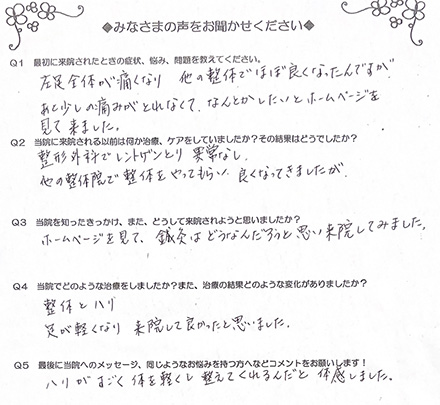 ◆みなさまの声をお聞かせください◆
Q1 最初に来院されたときの症状、悩み、問題を教えてください。
左足全体が痛くなり 他の整体でほぼ良くなったんですが
あと少しの痛みがとれなくて、なんとかしたいとホームページを
見て来ました。
Q2 当院に来院される以前は何か治療、ケアをしていましたか？その結果はどうでしたか？
整形外科でレントゲンとり 異常なし。
他の整体院で整体をやってもらい 良くなってきましたが、
Q3 当院を知ったきっかけ、また、どうして来院されようと思いましたか？
ホームページを見て、鍼灸はどうなんだろうと思い来院してみました。
Q4 当院でどのような治療をしましたか？また、治療の結果どのような変化がありましたか？
整体とハリ
足が軽くなり 来院して良かったと思いました。
Q5 最後に当院へのメッセージ、同じようなお悩みを持つ方へなどコメントをお願いします！
ハリがすごく体を軽くし整えてくれるんだと体感しました。